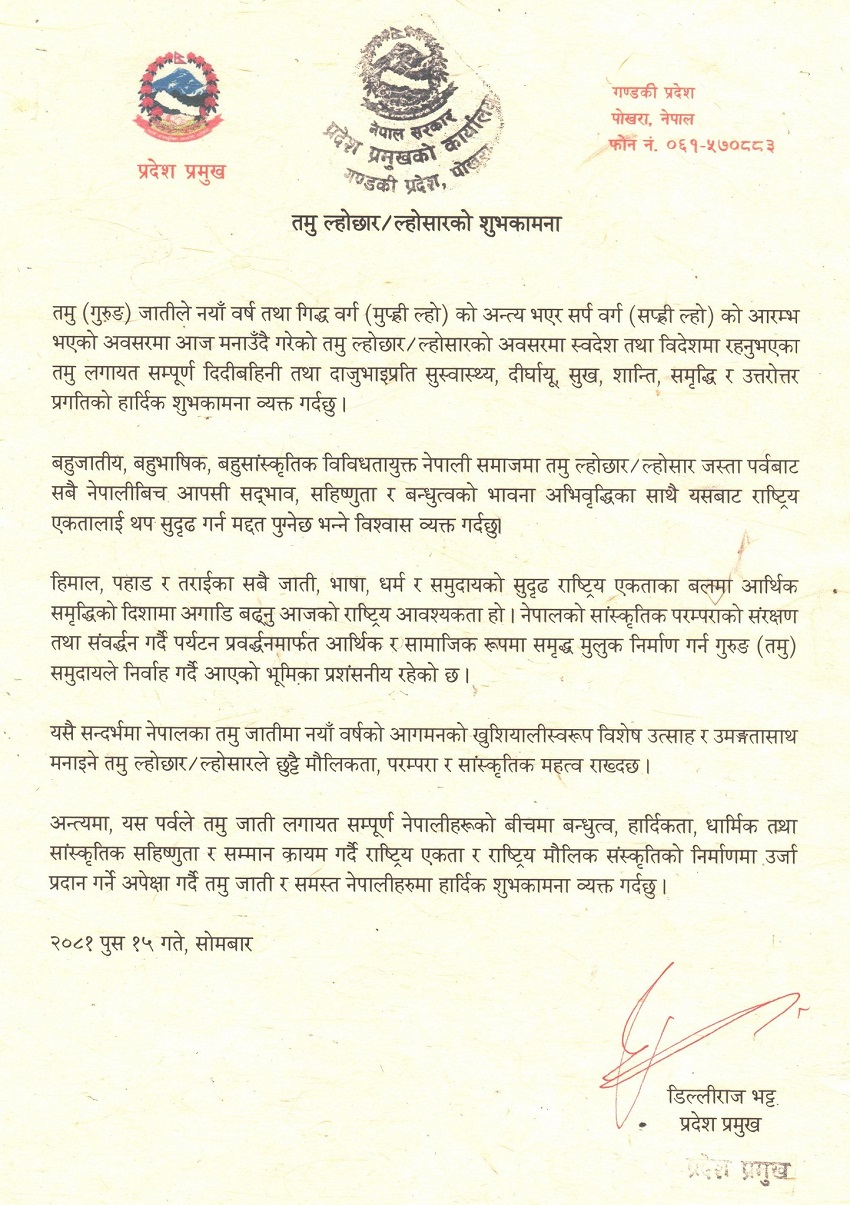 प्रदेश प्रमुख
नेपाल सरकार
प्रदेश प्रमुखको कार्यालय
गण्डकी प्रदेश, पोखरा
गण्डकी प्रदेश
पोखरा, नेपाल
फोन नं. ०६१-५७०८८३
तमु ल्होछार/ल्होसारको शुभकामना
तमु (गुरुङ) जातीले नयाँ वर्ष तथा गिद्ध वर्ग (मुप्ह्री ल्हो) को अन्त्य भएर सर्प वर्ग (सप्ह्री ल्हो) को आरम्भ
भएको अवसरमा आज मनाउँदै गरेको तमु ल्होछार/ल्होसारको अवसरमा स्वदेश तथा विदेशमा रहनुभएका
तमु लगायत सम्पूर्ण दिदीबहिनी तथा दाजुभाइप्रति सुस्वास्थ्य, दीर्घायू, सुख, शान्ति, समृद्धि र उत्तरोत्तर
प्रगतिको हार्दिक शुभकामना व्यक्त गर्दछु ।
बहुजातीय, बहुभाषिक, बहुसांस्कृतिक विविधतायुक्त नेपाली समाजमा तमु ल्होछार/ल्होसार जस्ता पर्वबाट
सबै नेपालीबिच आपसी सद्‌भाव, सहिष्णुता र बन्धुत्वको भावना अभिवृद्धिका साथै यसबाट राष्ट्रिय
एकतालाई थप सुदृढ गर्न मद्दत पुग्नेछ भन्ने विश्वास व्यक्त गर्दछु।
हिमाल, पहाड र तराईका सबै जाती, भाषा, धर्म र समुदायको सुदृढ राष्ट्रिय एकताका बलमा आर्थिक
समृद्धिको दिशामा अगाडि बढ्नु आजको राष्ट्रिय आवश्यकता हो । नेपालको सांस्कृतिक परम्पराको संरक्षण
तथा संवर्द्धन गर्दै पर्यटन प्रवर्द्धनमार्फत आर्थिक र सामाजिक रूपमा समृद्ध मुलुक निर्माण गर्न गुरुङ (तमु)
समुदायले निर्वाह गर्दै आएको भूमिका प्रशंसनीय रहेको छ ।
यसै सन्दर्भमा नेपालका तमु जातीमा नयाँ वर्षको आगमनको खुशियालीस्वरूप विशेष उत्साह र उमङ्गतासाथ
मनाइने तमु ल्होछार/ल्होसारले छुट्टै मौलिकता, परम्परा र सांस्कृतिक महत्व राख्दछ ।
अन्त्यमा, यस पर्वले तमु जाती लगायत सम्पूर्ण नेपालीहरूको बीचमा बन्धुत्व, हार्दिकता, धार्मिक तथा
सांस्कृतिक सहिष्णुता र सम्मान कायम गर्दै राष्ट्रिय एकता र राष्ट्रिय मौलिक संस्कृतिको निर्माणमा उर्जा
प्रदान गर्ने अपेक्षा गर्दै तमु जाती र समस्त नेपालीहरुमा हार्दिक शुभकामना व्यक्त गर्दछु ।
२०८१ पुस १५ गते, सोमबार
डिल्लीराज भट्ट
प्रदेश प्रमुख
प्रदेश प्रमुख